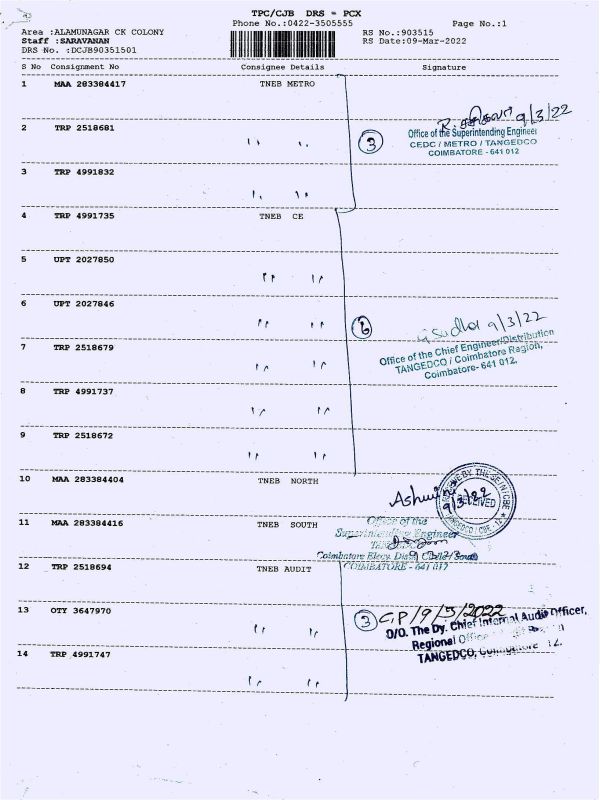 TPC/CJB DRS = PCX
Phone No.:0422-3505555 Page No.:1
Area :ALAMUNAGAR CK COLONY RS No.:903515
Staff :SARAVANAN RS Date:09-Mar-2022
DRS No. :DCJB90351501
S No Consignment No Consignee Details Signature
1 MAA 283384417 TNEB METRO
9/3/22
2 TRP 2518681 " "
3
Office of the Superintending Engineer
CEDC / METRO / TANGEDCO
COIMBATORE - 641 012
3 TRP 4991832 " "
4 TRP 4991735 TNEB CE
5 UPT 2027850 " "
6 UPT 2027846 " "
6
9/3/22
Office of the Chief Engineer/Distribution
TANGEDCO / Coimbatore Region,
Coimbatore- 641 012.
7 TRP 2518679 " "
8 TRP 4991737 " "
9 TRP 2518672 " "
10 MAA 283384404 TNEB NORTH
9/3/22
RECEIVED
11 MAA 283384416 TNEB SOUTH
Office of the
Superintending Engineer
COIMBATORE - 641 012
12 TRP 2518694 TNEB AUDIT
13 OTY 3647970 " "
3 C.P/9/3/2022
O/O. The Dy. Chief Internal Audit Officer,
Regional Office
TANGEDCO, Coimbatore - 12.
14 TRP 4991747 " "